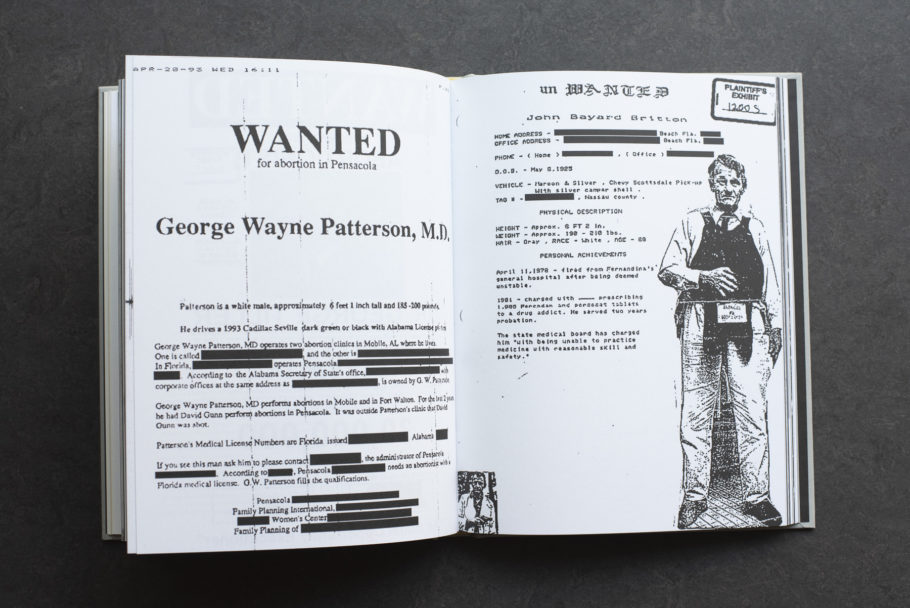 APR-20-93 WED 16:11
WANTED
for abortion in Pensacola
George Wayne Patterson, M.D.
Patterson is a white male, approximately 6 feet 1 inch tall and 185-200 pounds.
He drives a 1993 Cadillac Seville dark green or black with Alabama License
George Wayne Patterson, MD operates two abortion clinics in Mobile, AL where he lives.
One is called , and the other is
In Florida, operates Pensacola
. According to the Alabama Secretary of State's office, with
corporate offices at the same address as , is owned by G. W. Patterson
George Wayne Patterson, MD performs abortions in Mobile and in Fort Walton. For the last 2 years
he had David Gunn perform abortions in Pensacola. It was outside Patterson's clinic that David
Gunn was shot.
Patterson's Medical License Numbers are Florida issued Alabama
If you see this man ask him to please contact , the administrator of Pensacola
. According to , Pensacola needs an abortionist with a
Florida medical license. G.W. Patterson fills the qualifications.
Pensacola
Family Planning International,
Women's Center
Family Planning of
un WANTED
PLAINTIFF'S
EXHIBIT
1200 S
John Bayard Britton
HOME ADDRESS - Beach Fla.
OFFICE ADDRESS - Beach Fla.
PHONE - ( Home ) , ( Office )
D.O.B. - May 6,1925
VEHICLE - Maroon & Silver , Chevy Scottsdale Pick-up
With silver camper shell .
TAG # - , Nassau county .
PHYSICAL DESCRIPTION
HEIGHT - Approx. 6 FT 2 in.
WEIGHT - Approx. 190 - 210 lbs.
HAIR - Gray , RACE - White , AGE - 68
PERSONAL ACHIEVEMENTS
April 11,1978 - fired from Fernandina's
general hospital after being deemed
unstable.
1981 - charged with prescribing
1,000 Percodan and percocet tablets
to a drug addict. He served two years
probation.
The state medical board has charged
him "with being unable to practice
medicine with reasonable skill and
safety."